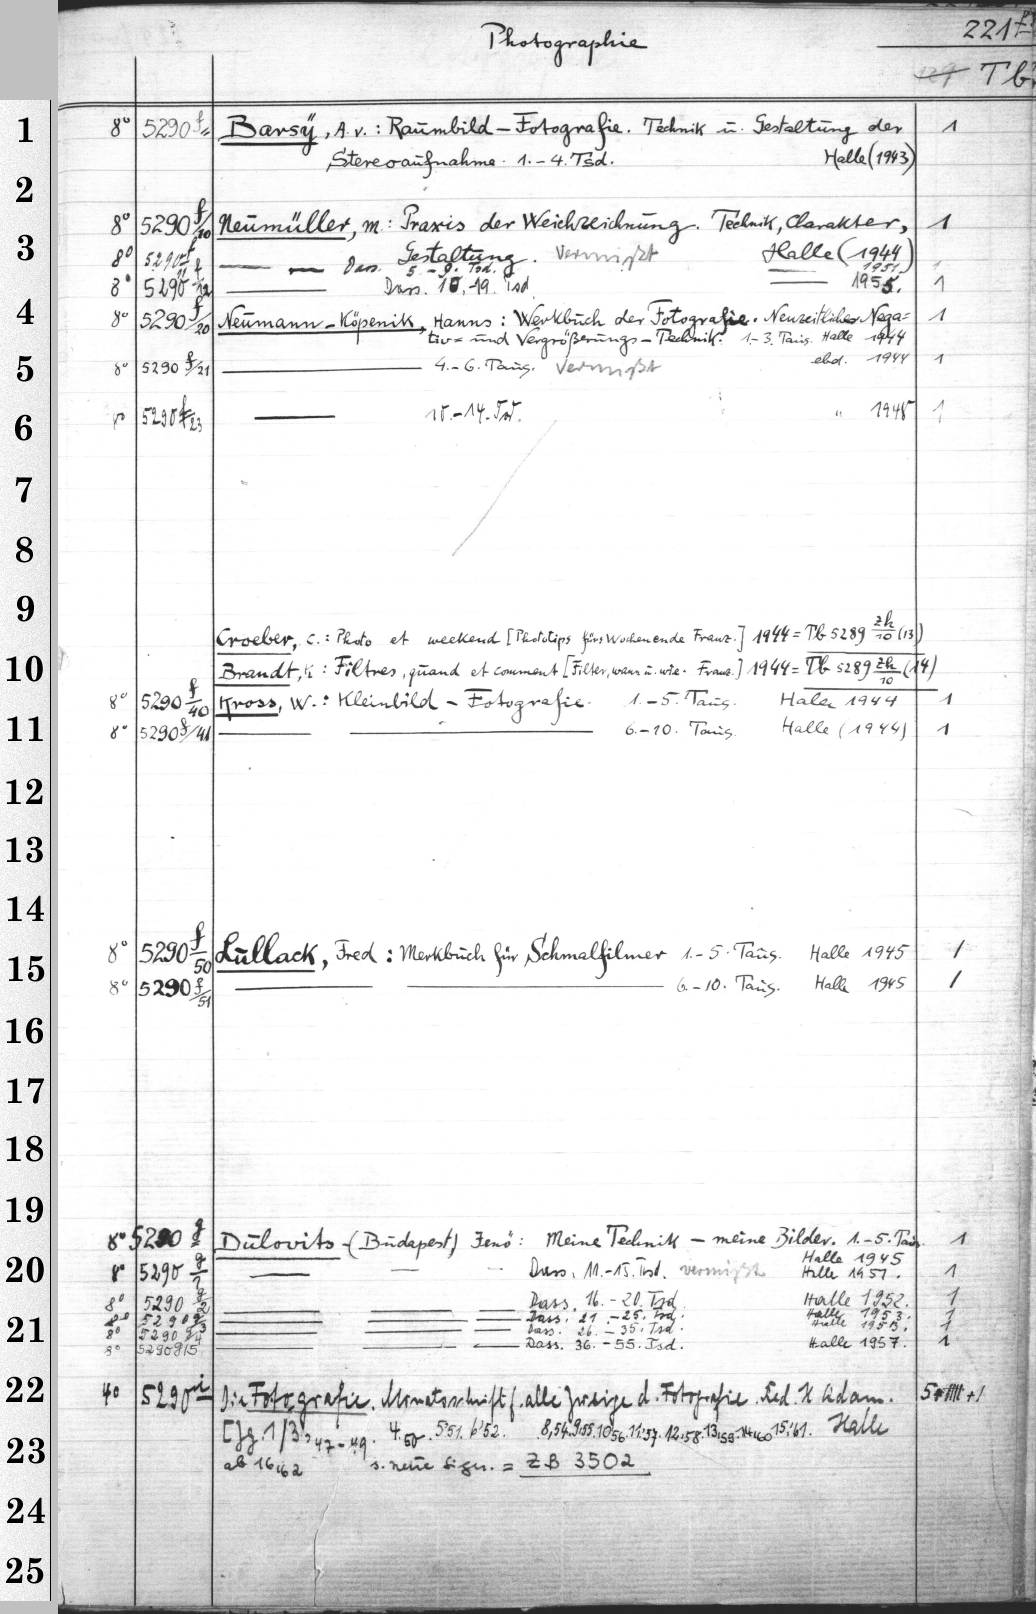 Photographie
221
Tb
1
8° 5290 f Barsÿ, A. v.: Raumbild-Fotografie. Technik u. Gestaltung der 1
Stereoaufnahme. 1.-4. Tsd. Halle (1943)
2
8° 5290 f/10 Neumüller, M: Praxis der Weichzeichnung. Technik, Charakter, 1
3
Gestaltung. Vermißt Halle (1944)
8° 5290 f — — Dass. 5.-9. Tsd. — 1951.
8° 5290 f/12 — Dass. 10.-19. Tsd — 1955. 1
4
8° 5290 f/20 Neumann-Köpenik, Hanns: Werkbuch der Fotografie. Neuzeitliche Nega= 1
tiv= und Vergrößerungs-Technik. 1.-3. Taus. Halle 1944
5
8° 5290 f/21 — 4.-6. Taus. Vermißt ebd. 1944 1
6
8° 5290 f/23 — 10.-14. Tsd. " 1948 1
7
8
9
Croeber, C.: Photo et weekend [Phototips fürs Wochenende Franz.] 1944 = Tb 5289 zh/10 (13)
10
Brandt, : Filtres, quand et comment [Filter, wann u. wie. Franz.] 1944 = Tb 5289 zh/10 (14)
8° 5290 f/40 Kross, W.: Kleinbild-Fotografie. 1.-5. Taus. Halle 1944 1
11
8° 5290 f/41 — — 6.-10. Taus. Halle (1944) 1
12
13
14
15
8° 5290 f/50 Lullack, Fred: Merkbuch für Schmalfilmer 1.-5. Taus. Halle 1945 1
8° 5290 f/51 — — 6.-10. Taus. Halle 1945 1
16
17
18
19
8° 5290 g Dulovits (Budapest) Jenö: Meine Technik — meine Bilder. 1.-5. Taus. 1
Halle 1945
20
8° 5290 g/1 — — Dass. 11.-15. Tsd. vermißt Halle 1951. 1
8° 5290 g/2 — — — Dass. 16.-20. Tsd. Halle 1952. 1
8° 5290 g/3 — — — Dass. 21.-25. Tsd. Halle 1953. 1
21
8° 5290 g/4 — — — Dass. 26.-35. Tsd. Halle 1
8° 5290 g/5 — — — Dass. 36.-55. Tsd. Halle 1957. 1
22
4° 5290 i Die Fotografie. Monatsschrift f. alle Zweige d. Fotografie. Red. H Adam.
[Jg. 1/3, 47-49. 4.50. 5'51. 6'52. 8,54. 9.55. 10.56. 11.'57. 12.'58. 13,59. 14.60. 15.'61. Halle
23
ab 16,62 s. neue Sign. = ZB 3502
24
25